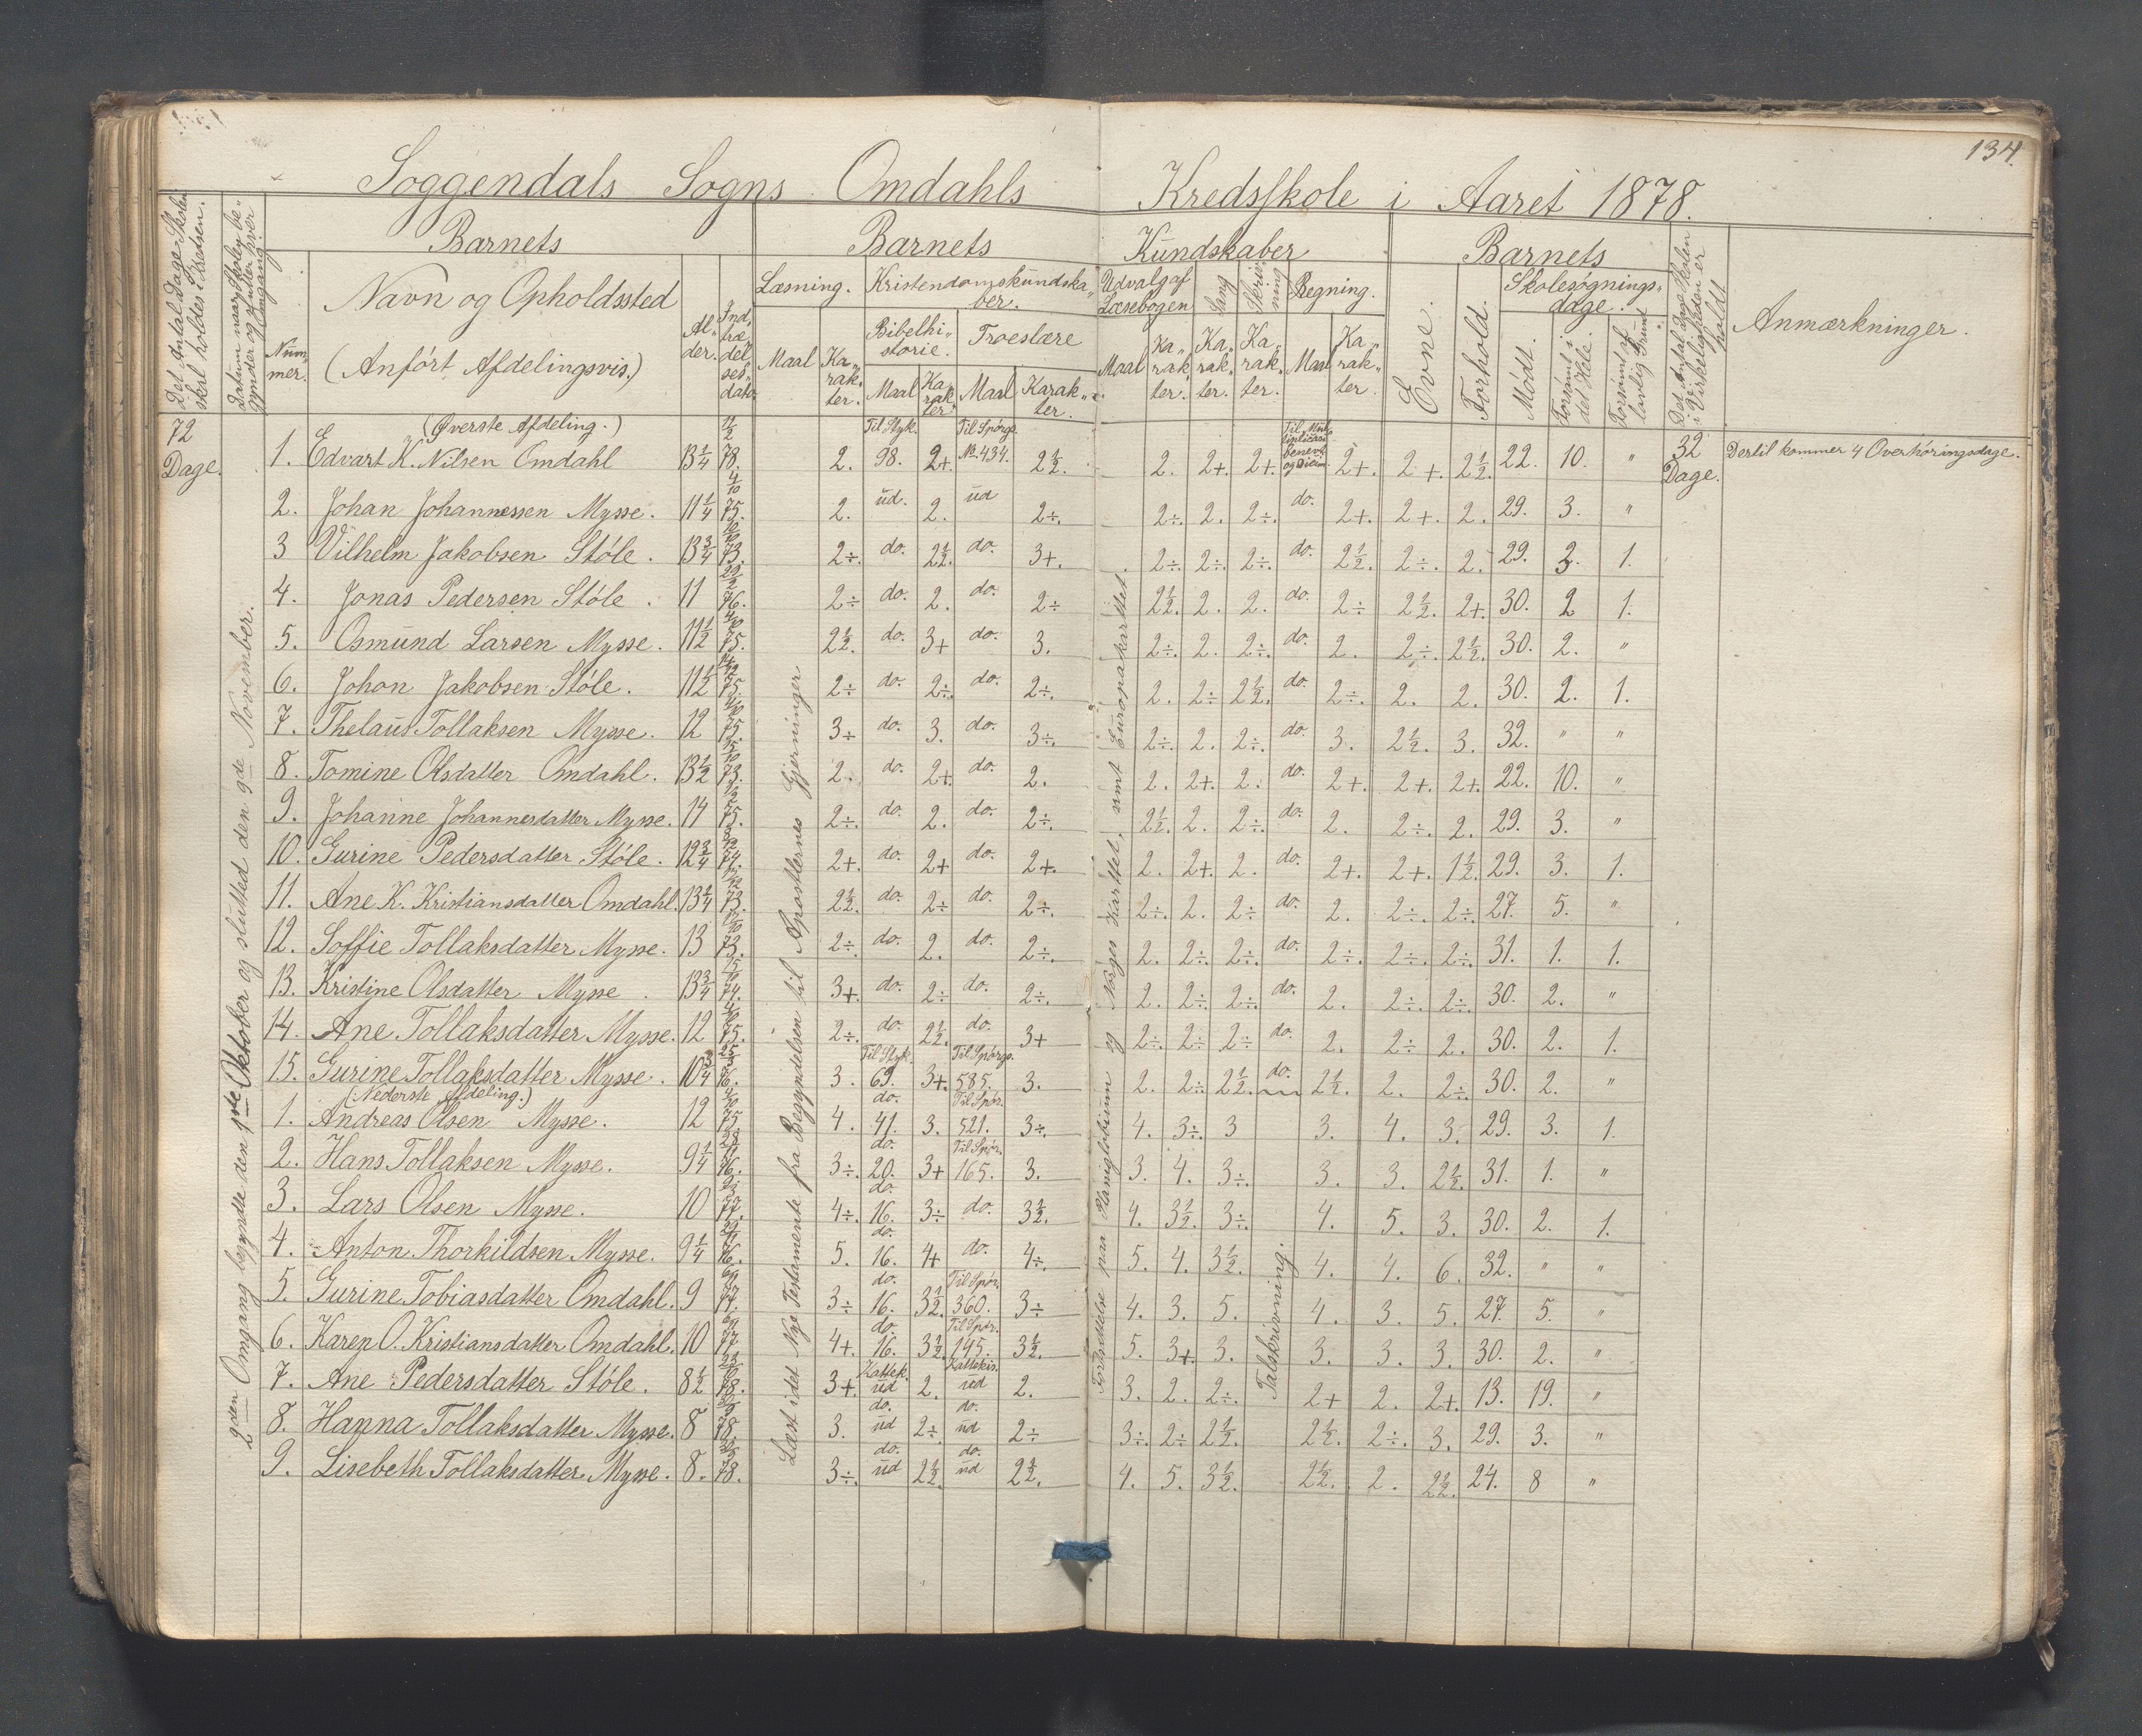 134.
Soggendals Sogns Omdahls Kredsskole i Aaret 1878.
Det Antal Dage Skolen skal holdes i Kredsen.
Datum naar Skolen begynder og slutter hver Omgang.
Barnets
Barnets Kundskaber
Barnets
Det Antal Dage Skolen i Virkeligheden er holdt
Anmærkninger.
Nummer. Navn og Opholdssted (Anført Afdelingsvis.) Alder. Indtrædelsesdato.
Læsning. Kristendomskundskaber. Udvalg af Læsebogen Sang Skrivning Regning. Evne. Forhold. Skolesøgningsdage.
Bibelhistorie. Troeslære
Maal Karakter. Maal Karakter Maal Karakter. Maal Karakter. Karakter. Karakter. Maal Karakter Mødt. Forsømt i det Hele Forsømt af lovlig Grund
72 Dage.
2den Omgang begyndte den 1ste Oktober og slutted den 9de November.
Læst i det Nye Testamente fra Begyndelsen til Apostlernes Gjerninger
Norges Karttet, samt Europakarttet
Talskrivning.
(Øverste Afdeling.) Til Styk. Til Spørgs.
1. Edvart K. Nilsen Omdahl 13 1/4 11/2 78. 2. 98. 2+. No 434. 2 1/2. 2. 2+. 2+. 2+. 2+. 2 1/2. 22. 10. " 32 Dage. Dertil kommer 4 Overhøringsdage.
2. Johan Johannessen Mysse. 11 1/4 4/10 75. 2. ud. 2. ud 2÷. 2÷. 2. 2÷. do. 2+. 2+. 2. 29. 3. "
3 Vilhelm Jakobsen Støle. 13 3/4 73. 2÷. do. 2 1/2. do. 3+. 2÷. 2÷. 2÷. do. 2 1/2. 2÷. 2. 29. 3. 1.
4. Jonas Pedersen Støle. 11 76. 2÷ do. 2. do. 2÷ 2 1/2. 2. 2. do. 2÷ 2 1/2. 2+. 30. 2 1.
5. Osmund Larsen Mysse. 11 1/2 75. 2 1/2. do. 3+ do. 3. 2÷. 2. 2÷. do. 2. 2÷. 2 1/2. 30. 2. "
6. Johan Jakobsen Støle. 11 1/2 75. 2÷ do. 2÷. do. 2÷. 2. 2÷ 2 1/2. do. 2÷. 2. 2. 30. 2. 1.
7. Thelaus Tollaksen Mysse. 12 75. 3÷ do. 3. do. 3÷. 2÷. 2. 2÷. do. 3. 2 1/2. 3. 32. " "
8. Tomine Olsdatter Omdahl. 13 1/2 73. 2. do. 2+. do. 2. 2. 2+. 2. do. 2+. 2+. 2+. 22. 10. "
9. Johanne Johannesdatter Mysse. 14 75. 2÷. do. 2. do. 2÷. 2 1/2. 2. 2÷. do. 2. 2÷. 2. 29. 3. "
10. Gurine Pedersdatter Støle. 12 3/4 74. 2+. do. 2+ do. 2+. 2. 2+. 2. do. 2+. 2+. 1 1/2. 29. 3. 1.
11. Ane K. Kristiansdatter Omdahl. 13 1/4 73. 2 1/2. do. 2÷ do. 2÷. 2÷. 2. 2÷ do. 2. 2÷. 2÷. 27. 5. "
12. Soffie Tollaksdatter Mysse. 13 73. 2÷ do. 2. do. 2÷. 2. 2÷. 2÷. do. 2÷. 2÷. 2÷. 31. 1. 1.
13. Kristine Olsdatter Mysse. 13 3/4 74. 3+. do. 2÷ do. 2÷. 2. 2÷. 2÷. do. 2. 2÷. 2÷. 30. 2. "
14. Ane Tollaksdatter Mysse. 12 75. 2÷. do. 2 1/2. do. 3+ 2÷. 2÷ 2÷ do. 2. 2÷ 2. 30. 2. 1.
Til Styk. Til Spørgs.
15. Gurine Tollaksdatter Mysse. 10 3/4 76. 3. 69. 3+. 585. 3. 2. 2÷ 2 1/2. do. 2 1/2. 2. 2÷. 30. 2. "
(Nederste Afdeling.) do. Til Spør.
1. Andreas Olsen Mysse. 12 75. 4. 41. 3. 521. 3÷. 4. 3÷. 3 3. 4. 3. 29. 3. 1.
do. Til Spør.
2. Hans Tollaksen Mysse. 9 1/4 76. 3÷. 20. 3+ 165. 3. 3. 4. 3÷. 3. 3. 2 1/2. 31. 1. "
do.
3. Lars Olsen Mysse. 10 77. 4÷. 16. 3÷ do. 3 1/2. 4. 3 1/2. 3÷. 4. 5. 3. 30. 2. 1.
do.
4. Anton Thorkildsen Mysse. 9 1/4 76. 5. 16. 4+ do. 4÷. 5. 4. 3 1/2. 4. 4. 6. 32. " "
do. Til Spør.
5. Gurine Tobiasdatter Omdahl. 9 77. 3÷ 16. 3 1/2. 360. 3÷ 4. 3. 5. 4. 3. 5. 27. 5. "
do. Til Spør.
6. Karen O. Kristiansdatter Omdahl. 10 77. 4+. 16. 3 1/2. 145. 3 1/2. 5. 3+. 3. 3. 3. 3. 30. 2. "
Kattek. Kattekis.
7. Ane Pedersdatter Støle. 8 1/2 78. 3+. ud 2. ud 2. 3. 2. 2÷. 2+ 2. 2+. 13. 19. "
do. do.
8. Hanna Tollaksdatter Mysse. 8 78. 3. ud 2÷. ud 2÷ 3÷. 2÷ 2 1/2. 2 1/2. 2÷. 3. 29. 3. "
do. do.
9. Lisebeth Tollaksdatter Mysse. 8. 78. 3÷. ud 2 1/2. ud 2 1/2. 4. 5. 3 1/2. 2 1/2. 2. 2 1/2. 24. 8 "